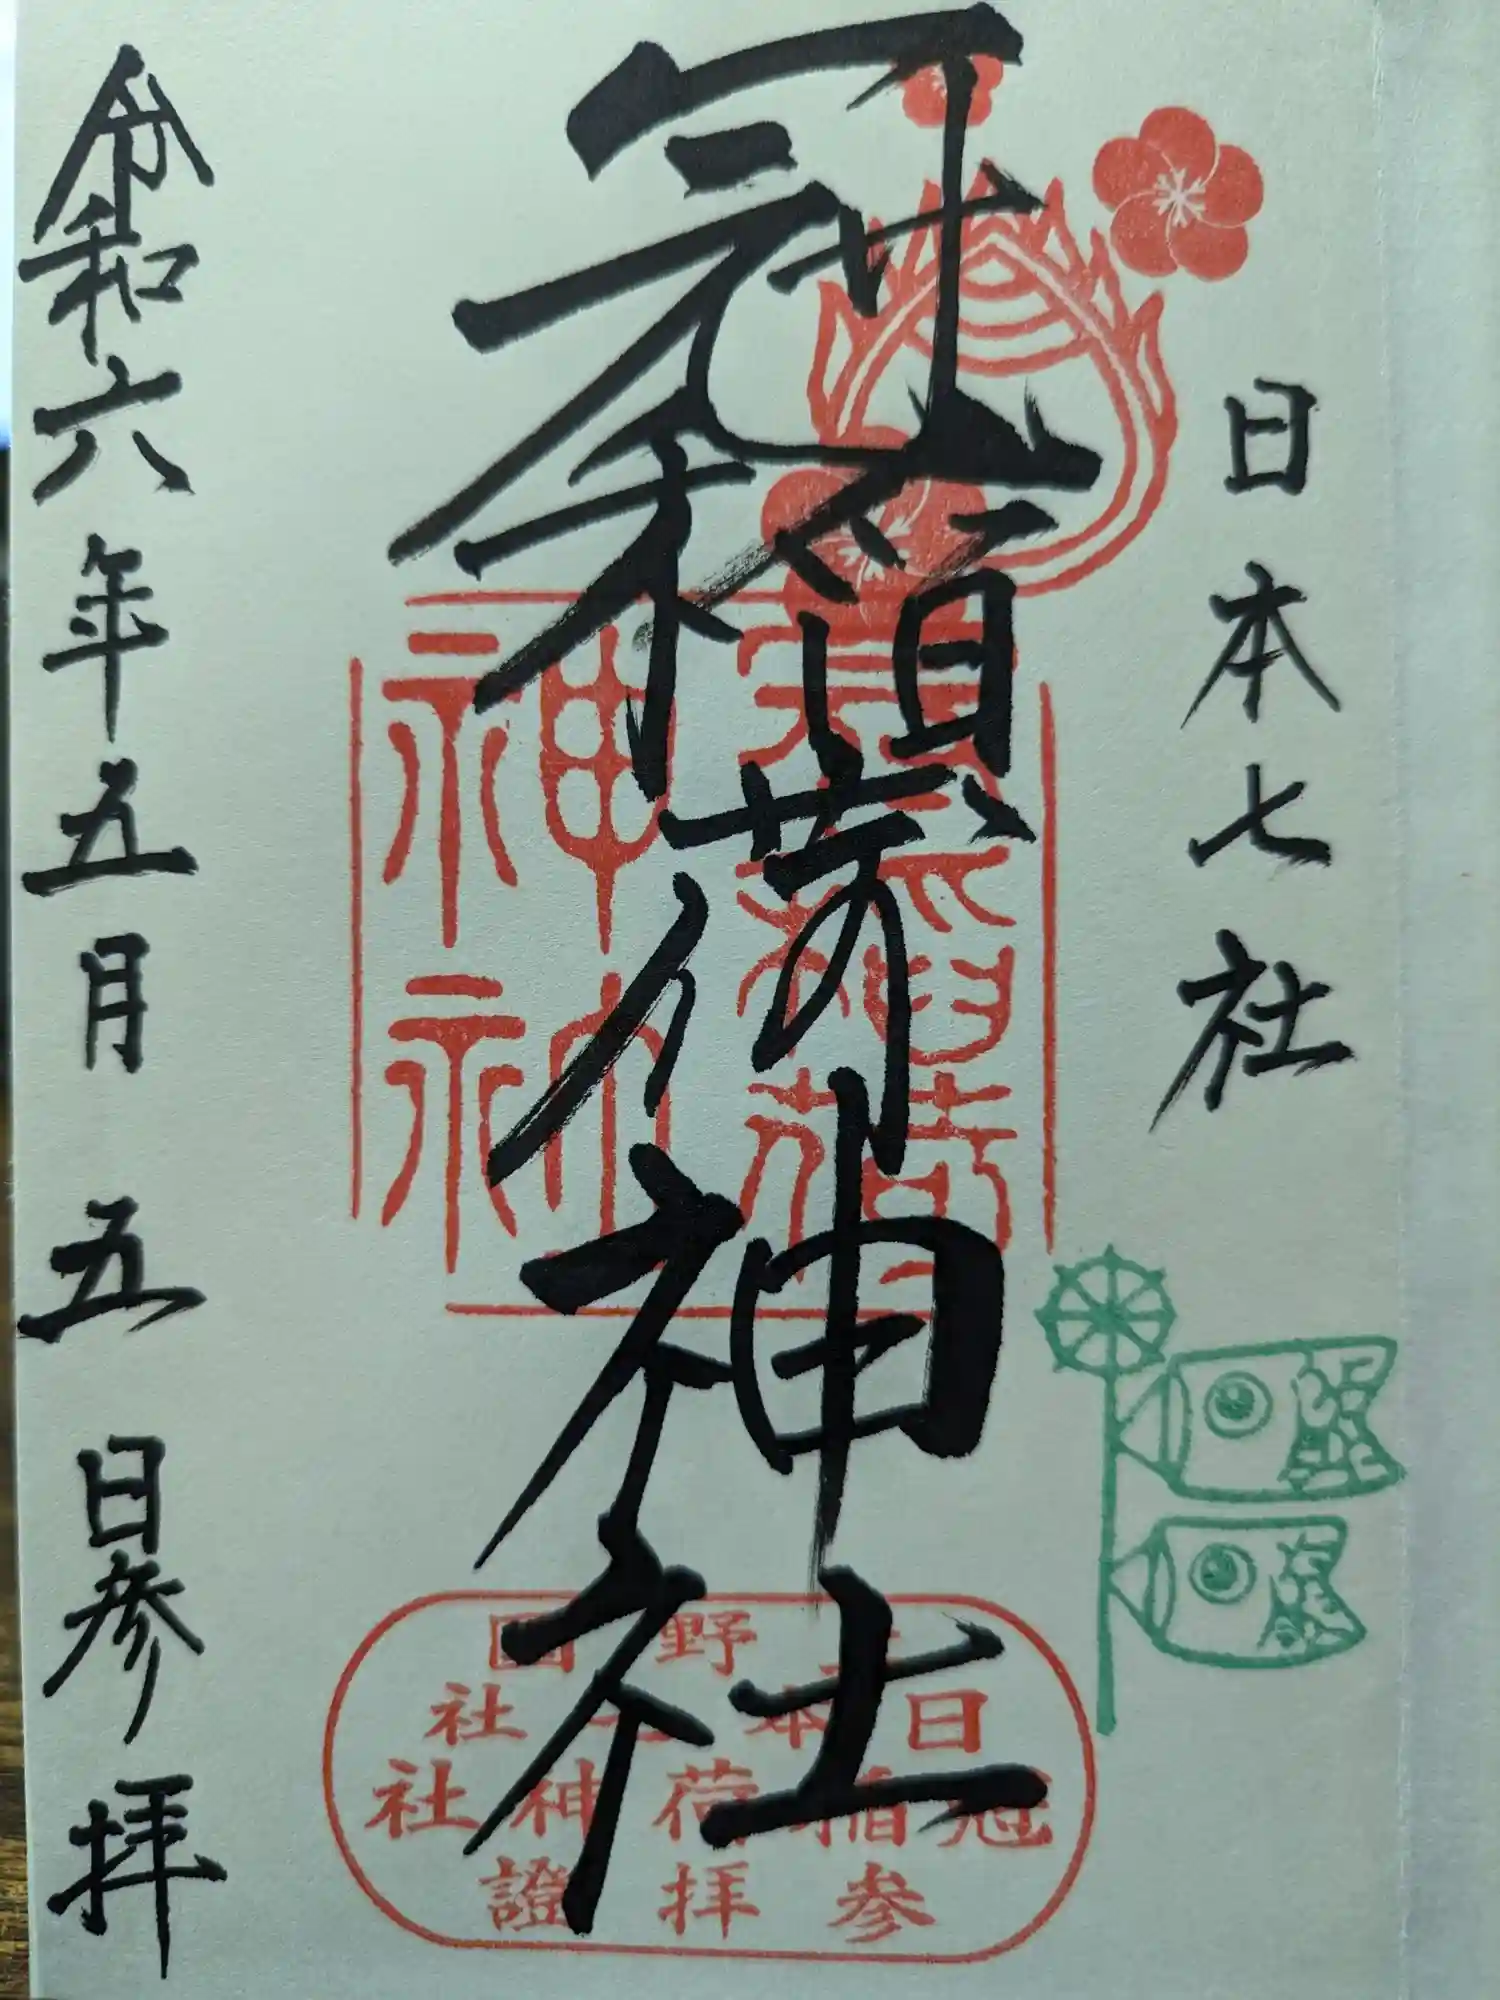 日本七社
冠稲荷神社
令和六年五月五日参拝
冠稲荷
神社
上野國
日本七社
冠稲荷神社
参拝證